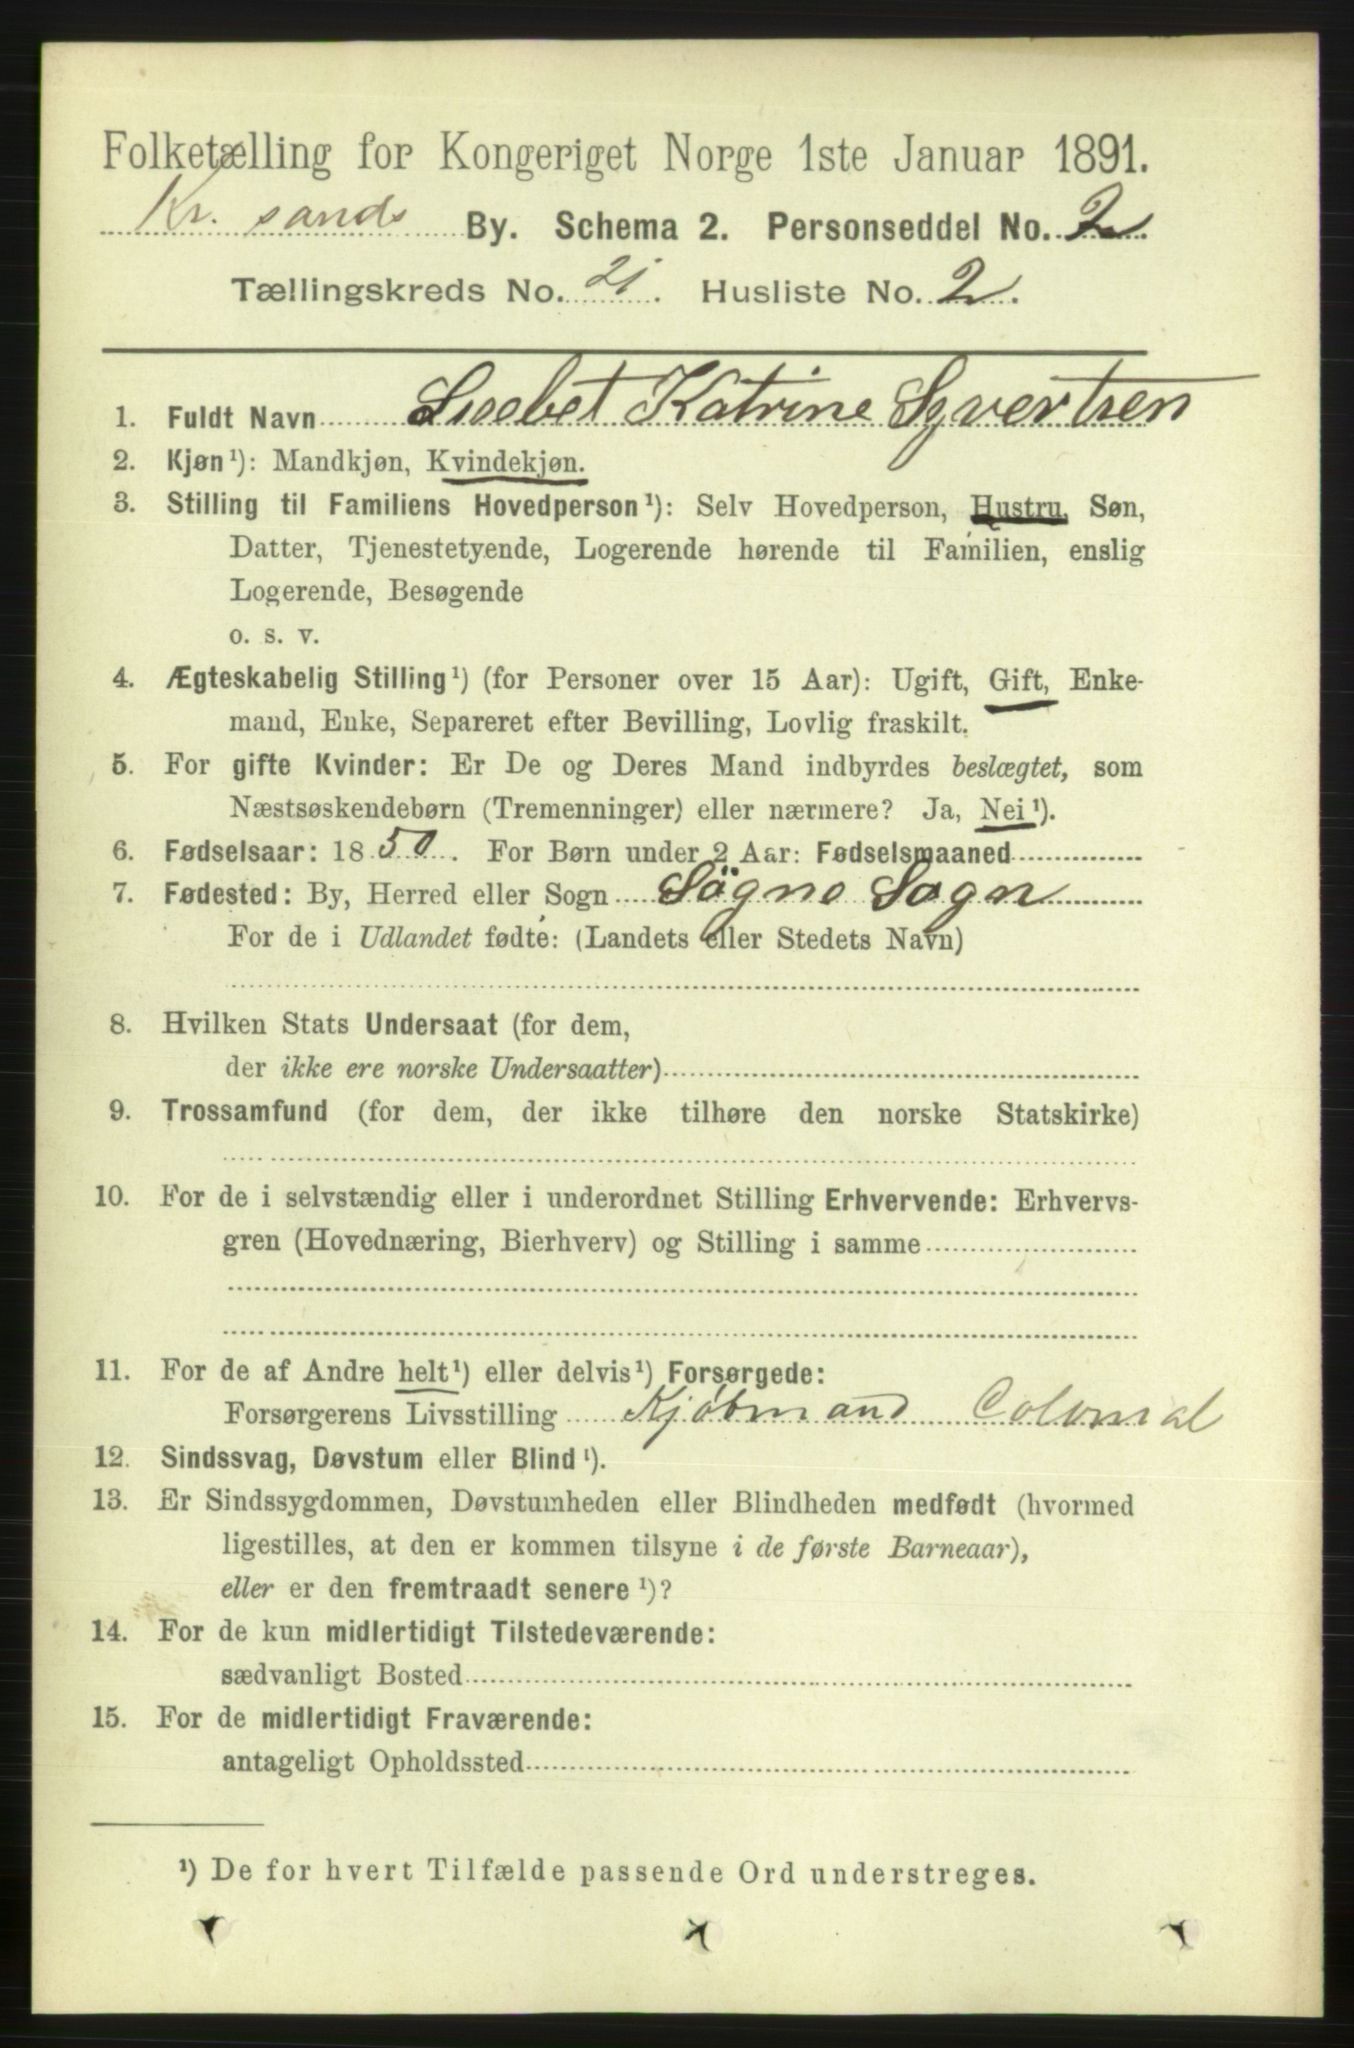 Folketælling for Kongeriget Norge 1ste Januar 1891.
Kr. sands By. Schema 2. Personseddel No. 2
Tællingskreds No. 21. Husliste No. 2.
1. Fuldt Navn Lisebet Katrine Syvertsen
2. Kjøn¹): Mandkjøn, Kvindekjøn.
3. Stilling til Familiens Hovedperson¹): Selv Hovedperson, Hustru, Søn,
Datter, Tjenestetyende, Logerende hørende til Familien, enslig
Logerende, Besøgende
o. s. v.
4. Ægteskabelig Stilling¹) (for Personer over 15 Aar): Ugift, Gift, Enke-
mand, Enke, Separeret efter Bevilling, Lovlig fraskilt.
5. For gifte Kvinder: Er De og Deres Mand indbyrdes beslægtet, som
Næstsøskendebørn (Tremenninger) eller nærmere? Ja, Nei¹).
6. Fødselsaar: 1850. For Børn under 2 Aar: Fødselsmaaned
7. Fødested: By, Herred eller Sogn Sögne Sogn
For de i Udlandet fødte: (Landets eller Stedets Navn)
8. Hvilken Stats Undersaat (for dem,
der ikke ere norske Undersaatter)
9. Trossamfund (for dem, der ikke tilhøre den norske Statskirke)
10. For de i selvstændig eller i underordnet Stilling Erhvervende: Erhvervs-
gren (Hovednæring, Bierhverv) og Stilling i samme
11. For de af Andre helt¹) eller delvis¹) Forsørgede:
Forsørgerens Livsstilling Kjøbmand Colonial
12. Sindssvag, Døvstum eller Blind¹).
13. Er Sindssygdommen, Døvstumheden eller Blindheden medfødt (hvormed
ligestilles, at den er kommen tilsyne i de første Barneaar),
eller er den fremtraadt senere¹)?
14. For de kun midlertidigt Tilstedeværende:
sædvanligt Bosted
15. For de midlertidigt Fraværende:
antageligt Opholdssted
¹) De for hvert Tilfælde passende Ord understreges.